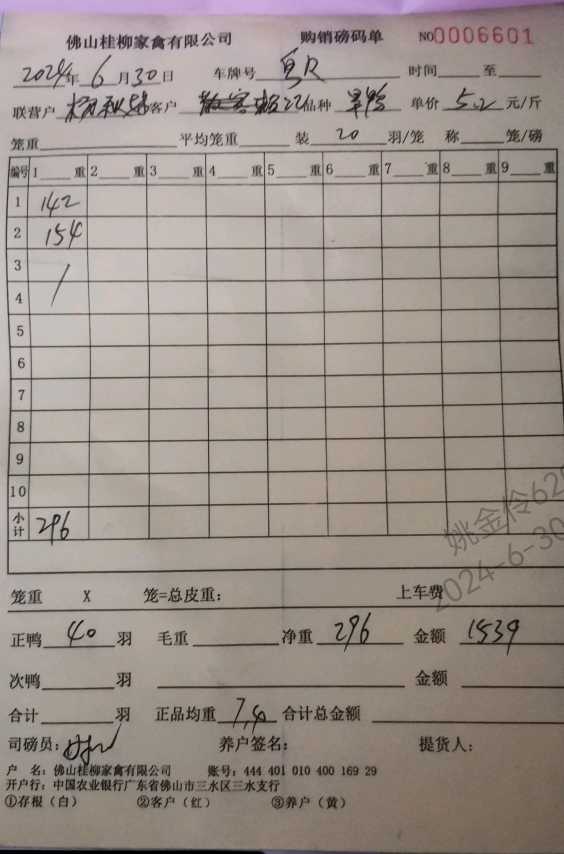 佛山桂柳家禽有限公司 购销磅码单 NO0006601
2024年6月30日 车牌号 时间 至
联营户 客户 品种 旱鸭 单价 5.2 元/斤
笼重 平均笼重 装 20 羽/笼 称 笼/磅
编号 1 重 2 重 3 重 4 重 5 重 6 重 7 重 8 重 9 重
1 142
2 154
3 /
4
5
6
7
8
9
10
小计 296
姚金伶62
2024-6-30
笼重 X 笼=总皮重: 上车费
正鸭 40 羽 毛重 净重 296 金额 1539
次鸭 羽 金额
合计 羽 正品均重 7.4 合计总金额
司磅员: 养户签名: 提货人:
户 名: 佛山桂柳家禽有限公司 账号: 444 401 010 400 169 29
开户行: 中国农业银行广东省佛山市三水区三水支行
①存根(白) ②客户(红) ③养户(黄)